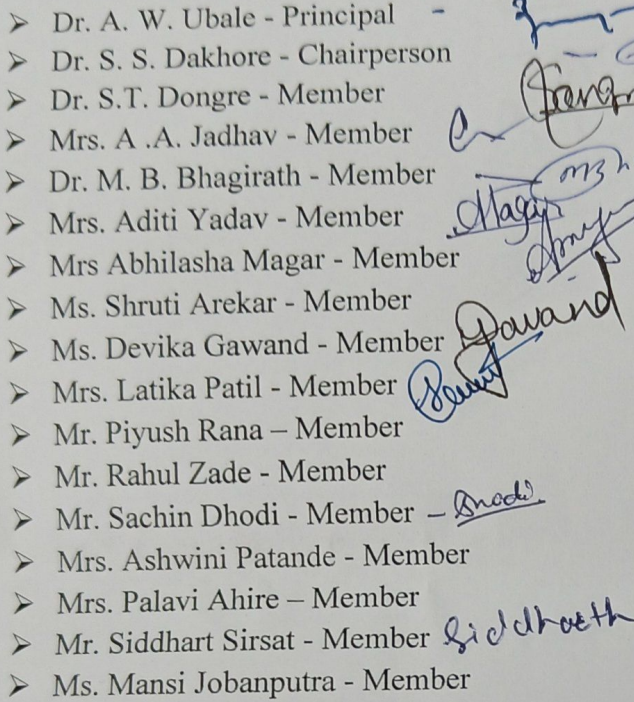 ➤ Dr. A. W. Ubale - Principal -
➤ Dr. S. S. Dakhore - Chairperson
➤ Dr. S.T. Dongre - Member
➤ Mrs. A .A. Jadhav - Member
➤ Dr. M. B. Bhagirath - Member
➤ Mrs. Aditi Yadav - Member
➤ Mrs Abhilasha Magar - Member
➤ Ms. Shruti Arekar - Member
➤ Ms. Devika Gawand - Member Gawand
➤ Mrs. Latika Patil - Member
➤ Mr. Piyush Rana – Member
➤ Mr. Rahul Zade - Member
➤ Mr. Sachin Dhodi - Member –
➤ Mrs. Ashwini Patande - Member
➤ Mrs. Palavi Ahire – Member
➤ Mr. Siddhart Sirsat - Member Siddharth
➤ Ms. Mansi Jobanputra - Member